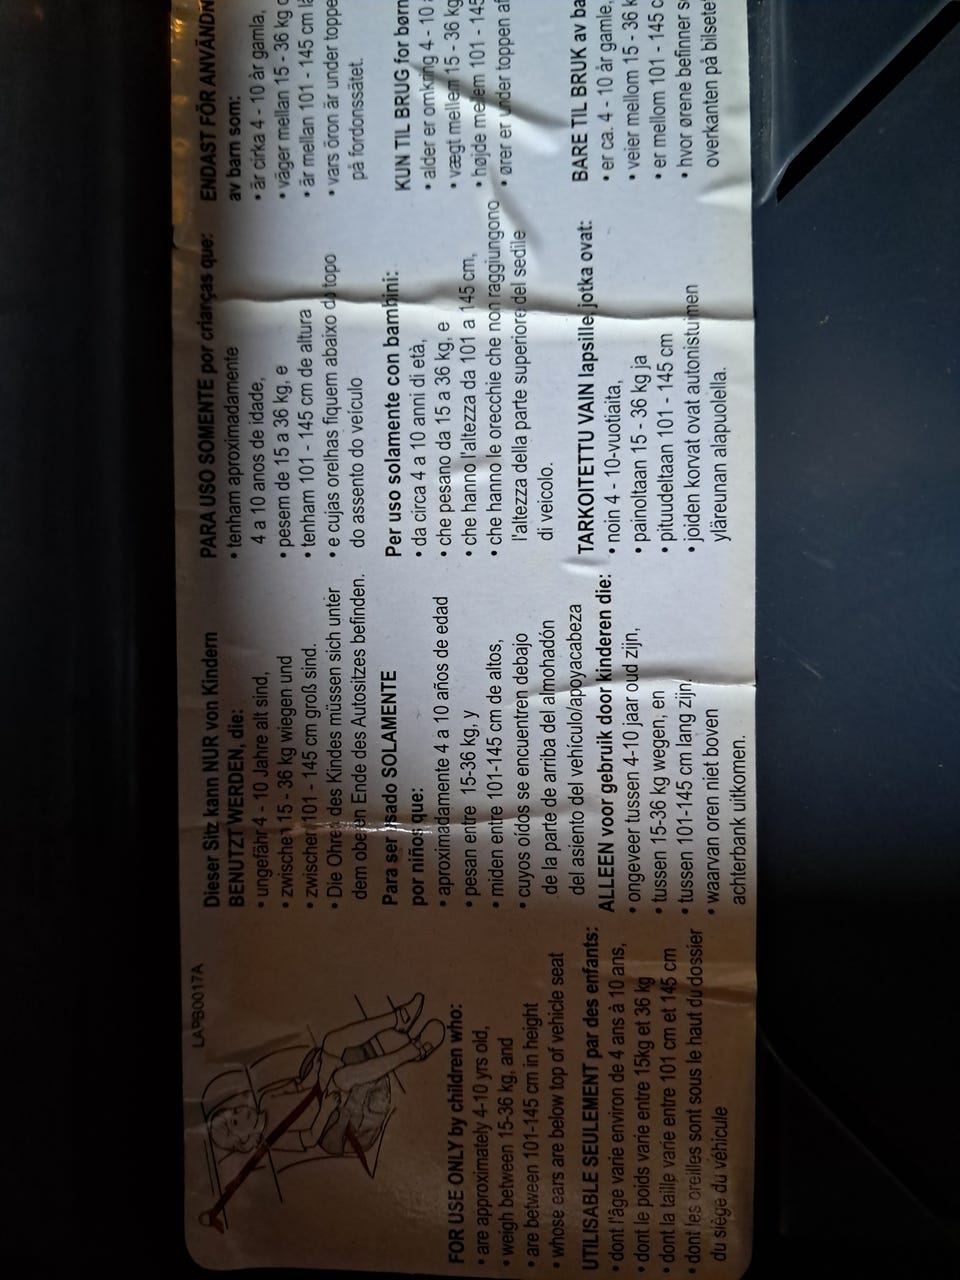 LAPB0017A
FOR USE ONLY by children who:
• are approximately 4-10 yrs old,
• weigh between 15-36 kg, and
• are between 101-145 cm in height
• whose ears are below top of vehicle seat
UTILISABLE SEULEMENT par des enfants:
• dont l'âge varie environ de 4 ans à 10 ans,
• dont le poids varie entre 15kg et 36 kg
• dont la taille varie entre 101 cm et 145 cm
• dont les oreilles sont sous le haut du dossier
du siège du véhicule
Dieser Sitz kann NUR von Kindern
BENUTZT WERDEN, die:
• ungefähr 4 - 10 Jahre alt sind,
• zwischen 15 - 36 kg wiegen und
• zwischen 101 - 145 cm groß sind.
• Die Ohren des Kindes müssen sich unter
dem oberen Ende des Autositzes befinden.
Para ser usado SOLAMENTE
por niños que:
• aproximadamente 4 a 10 años de edad
• pesan entre 15-36 kg, y
• miden entre 101-145 cm de altos,
• cuyos oídos se encuentren debajo
de la parte de arriba del almohadón
del asiento del vehículo/apoyacabeza
ALLEEN voor gebruik door kinderen die:
• ongeveer tussen 4-10 jaar oud zijn,
• tussen 15-36 kg wegen, en
• tussen 101-145 cm lang zijn.
• waarvan oren niet boven
achterbank uitkomen.
PARA USO SOMENTE por crianças que:
• tenham aproximadamente
4 a 10 anos de idade,
• pesem de 15 a 36 kg, e
• tenham 101 - 145 cm de altura
• e cujas orelhas fiquem abaixo do topo
do assento do veículo
Per uso solamente con bambini:
• da circa 4 a 10 anni di età,
• che pesano da 15 a 36 kg, e
• che hanno l'altezza da 101 a 145 cm,
• che hanno le orecchie che non raggiungono
l'altezza della parte superiore del sedile
di veicolo.
TARKOITETTU VAIN lapsille, jotka ovat:
• noin 4 - 10-vuotiaita,
• painoltaan 15 - 36 kg ja
• pituudeltaan 101 - 145 cm
• joiden korvat ovat autonistuimen
yläreunan alapuolella.
ENDAST FÖR ANVÄNDN
av barn som:
• är cirka 4 - 10 år gamla,
• väger mellan 15 - 36 kg
• är mellan 101 - 145 cm
• vars öron är under toppe
på fordonssätet.
KUN TIL BRUG for børn
• alder er omkring 4 - 10
• vægt mellem 15 - 36 kg
• højde mellem 101 - 145
• ører er under toppen af
BARE TIL BRUK av ba
• er ca. 4 - 10 år gamle,
• veier mellom 15 - 36 k
• er mellom 101 - 145 c
• hvor ørene befinner s
overkanten på bilsete